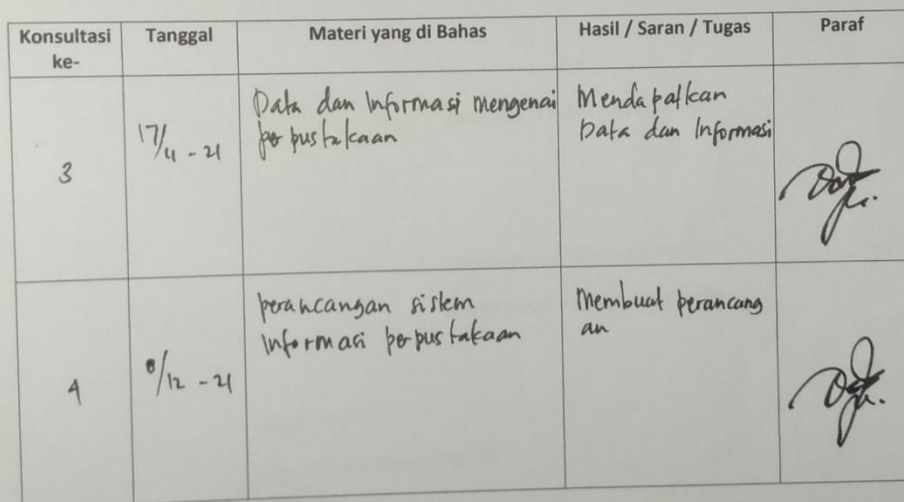 Konsultasi ke- Tanggal Materi yang di Bahas Hasil / Saran / Tugas Paraf
3
17/11 - 21
Data dan Informasi mengenai
perpustakaan
Mendapatkan
Data dan Informasi
4
/12 - 21
perancangan sistem
Informasi perpustakaan
Membuat perancang
an